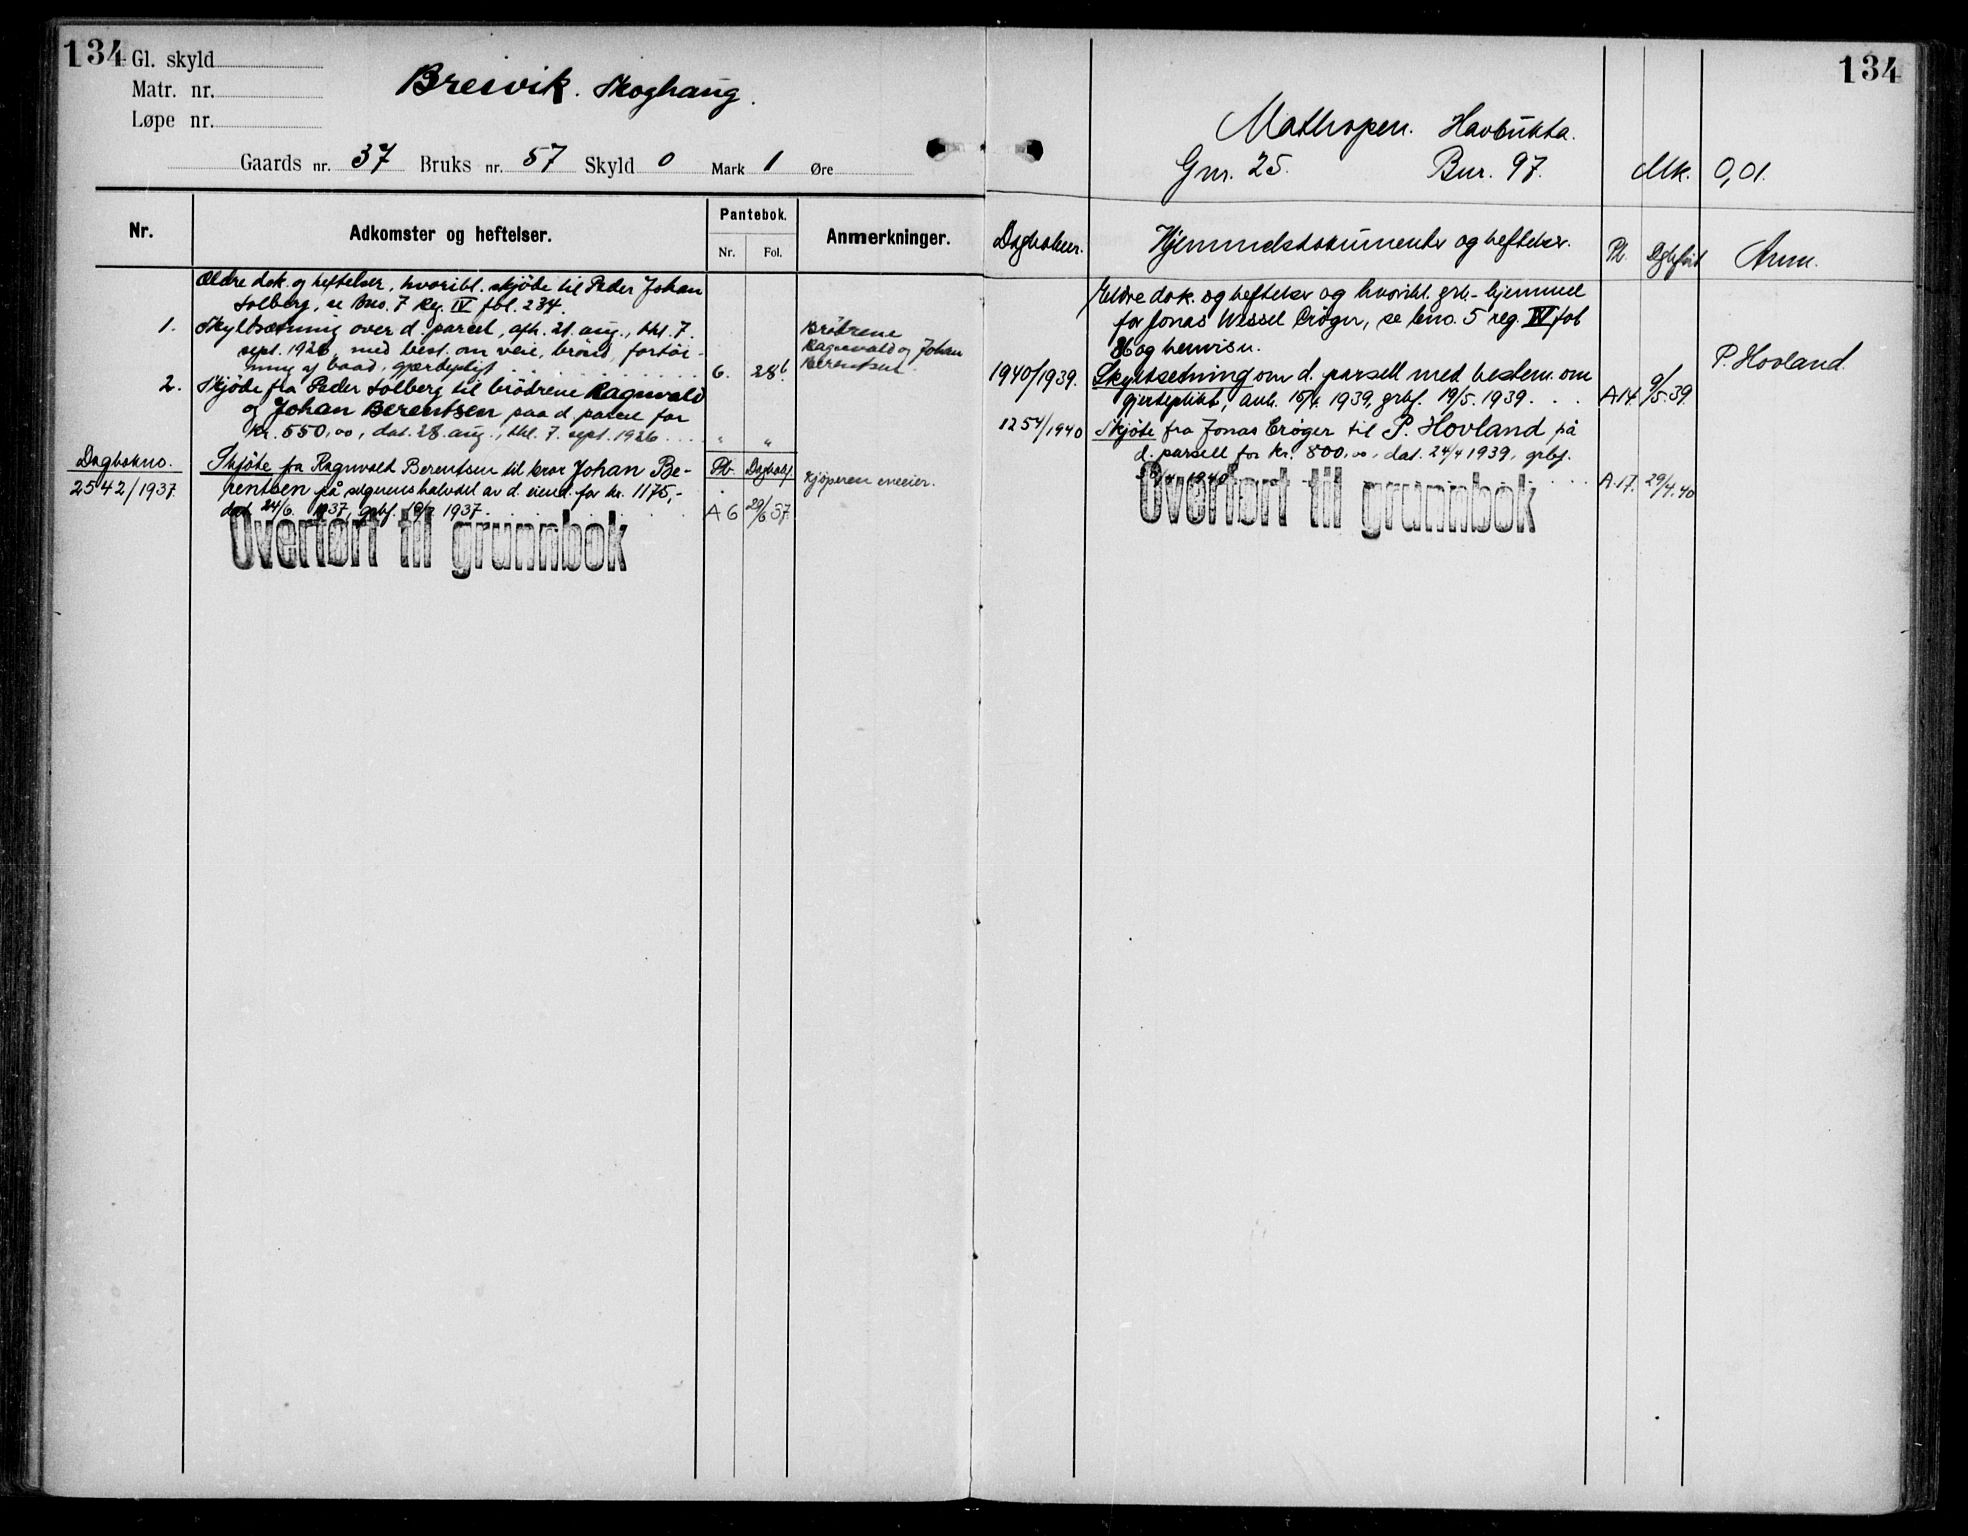 134
Gl. skyld
Matr. nr.
Løpe nr.
Breivik. Skoghaug.
Gaards nr. 37 Bruks nr. 57 Skyld 0 Mark 1 Øre
Nr.
Adkomster og heftelser.
Pantebok.
Nr. Fol.
Anmerkninger.
Ældre dok. og heftelser, hvoribl. skjöde til Peder Johan
Solberg, se Bno. 7 Reg. IV fbl. 234.
1. Skyldsætning over d. parcel, afh. 21. aug., thl. 7.
sept. 1926, med best. om veie, brönd, fortöi-
ning af baad, gjærdepligt 6. 286.
Brödrene
Ragnvald og Johan
Berentsen.
2. Skjöde fra Peder Solberg til brödrene Ragnvald
og Johan Berentsen paa d. parcel for
Kr. 550,00, dat. 28. aug., thl. 7. sept. 1926 " "
Dagbokno.
2542/1937.
Skjöte fra Ragnvald Berentsen til bror Johan Be-
rentsen på selgerens halvdel av d. eiend. for kr. 1175,-
dat. 24/6. 1937, grbf. 1937.
Pb. Dagbokf.
A 6 29/6 37.
Kjöperen eneeier.
Overført til grunnbok
134
Mathopen. Havbukta.
Gnr. 25. Bnr. 97. Mk. 0,01.
Dagboknr.
Hjemmelsdokumenter og heftelser.
Pb. Dgbført
Anm.
Eldre dok. og heftelser og hvoribl. grb.-hjemmel
for Jonas Wessel Cröger, se bno. 5 reg. IV fol
86 og henvisn.
1940/1939. Skyldsetning over d. parsell med bestem. om
gjerdeplikt, avh. 15/4. 1939, grbf. 19/5. 1939. A.14. 9/5.39.
P. Hovland.
1254/1940 Skjöte fra Jonas Cröger til P. Hovland på
d. parsell for kr. 800,00, dat. 24/4 1939, grbf.
1940 A.17. 29/4.40
Overført til grunnbok